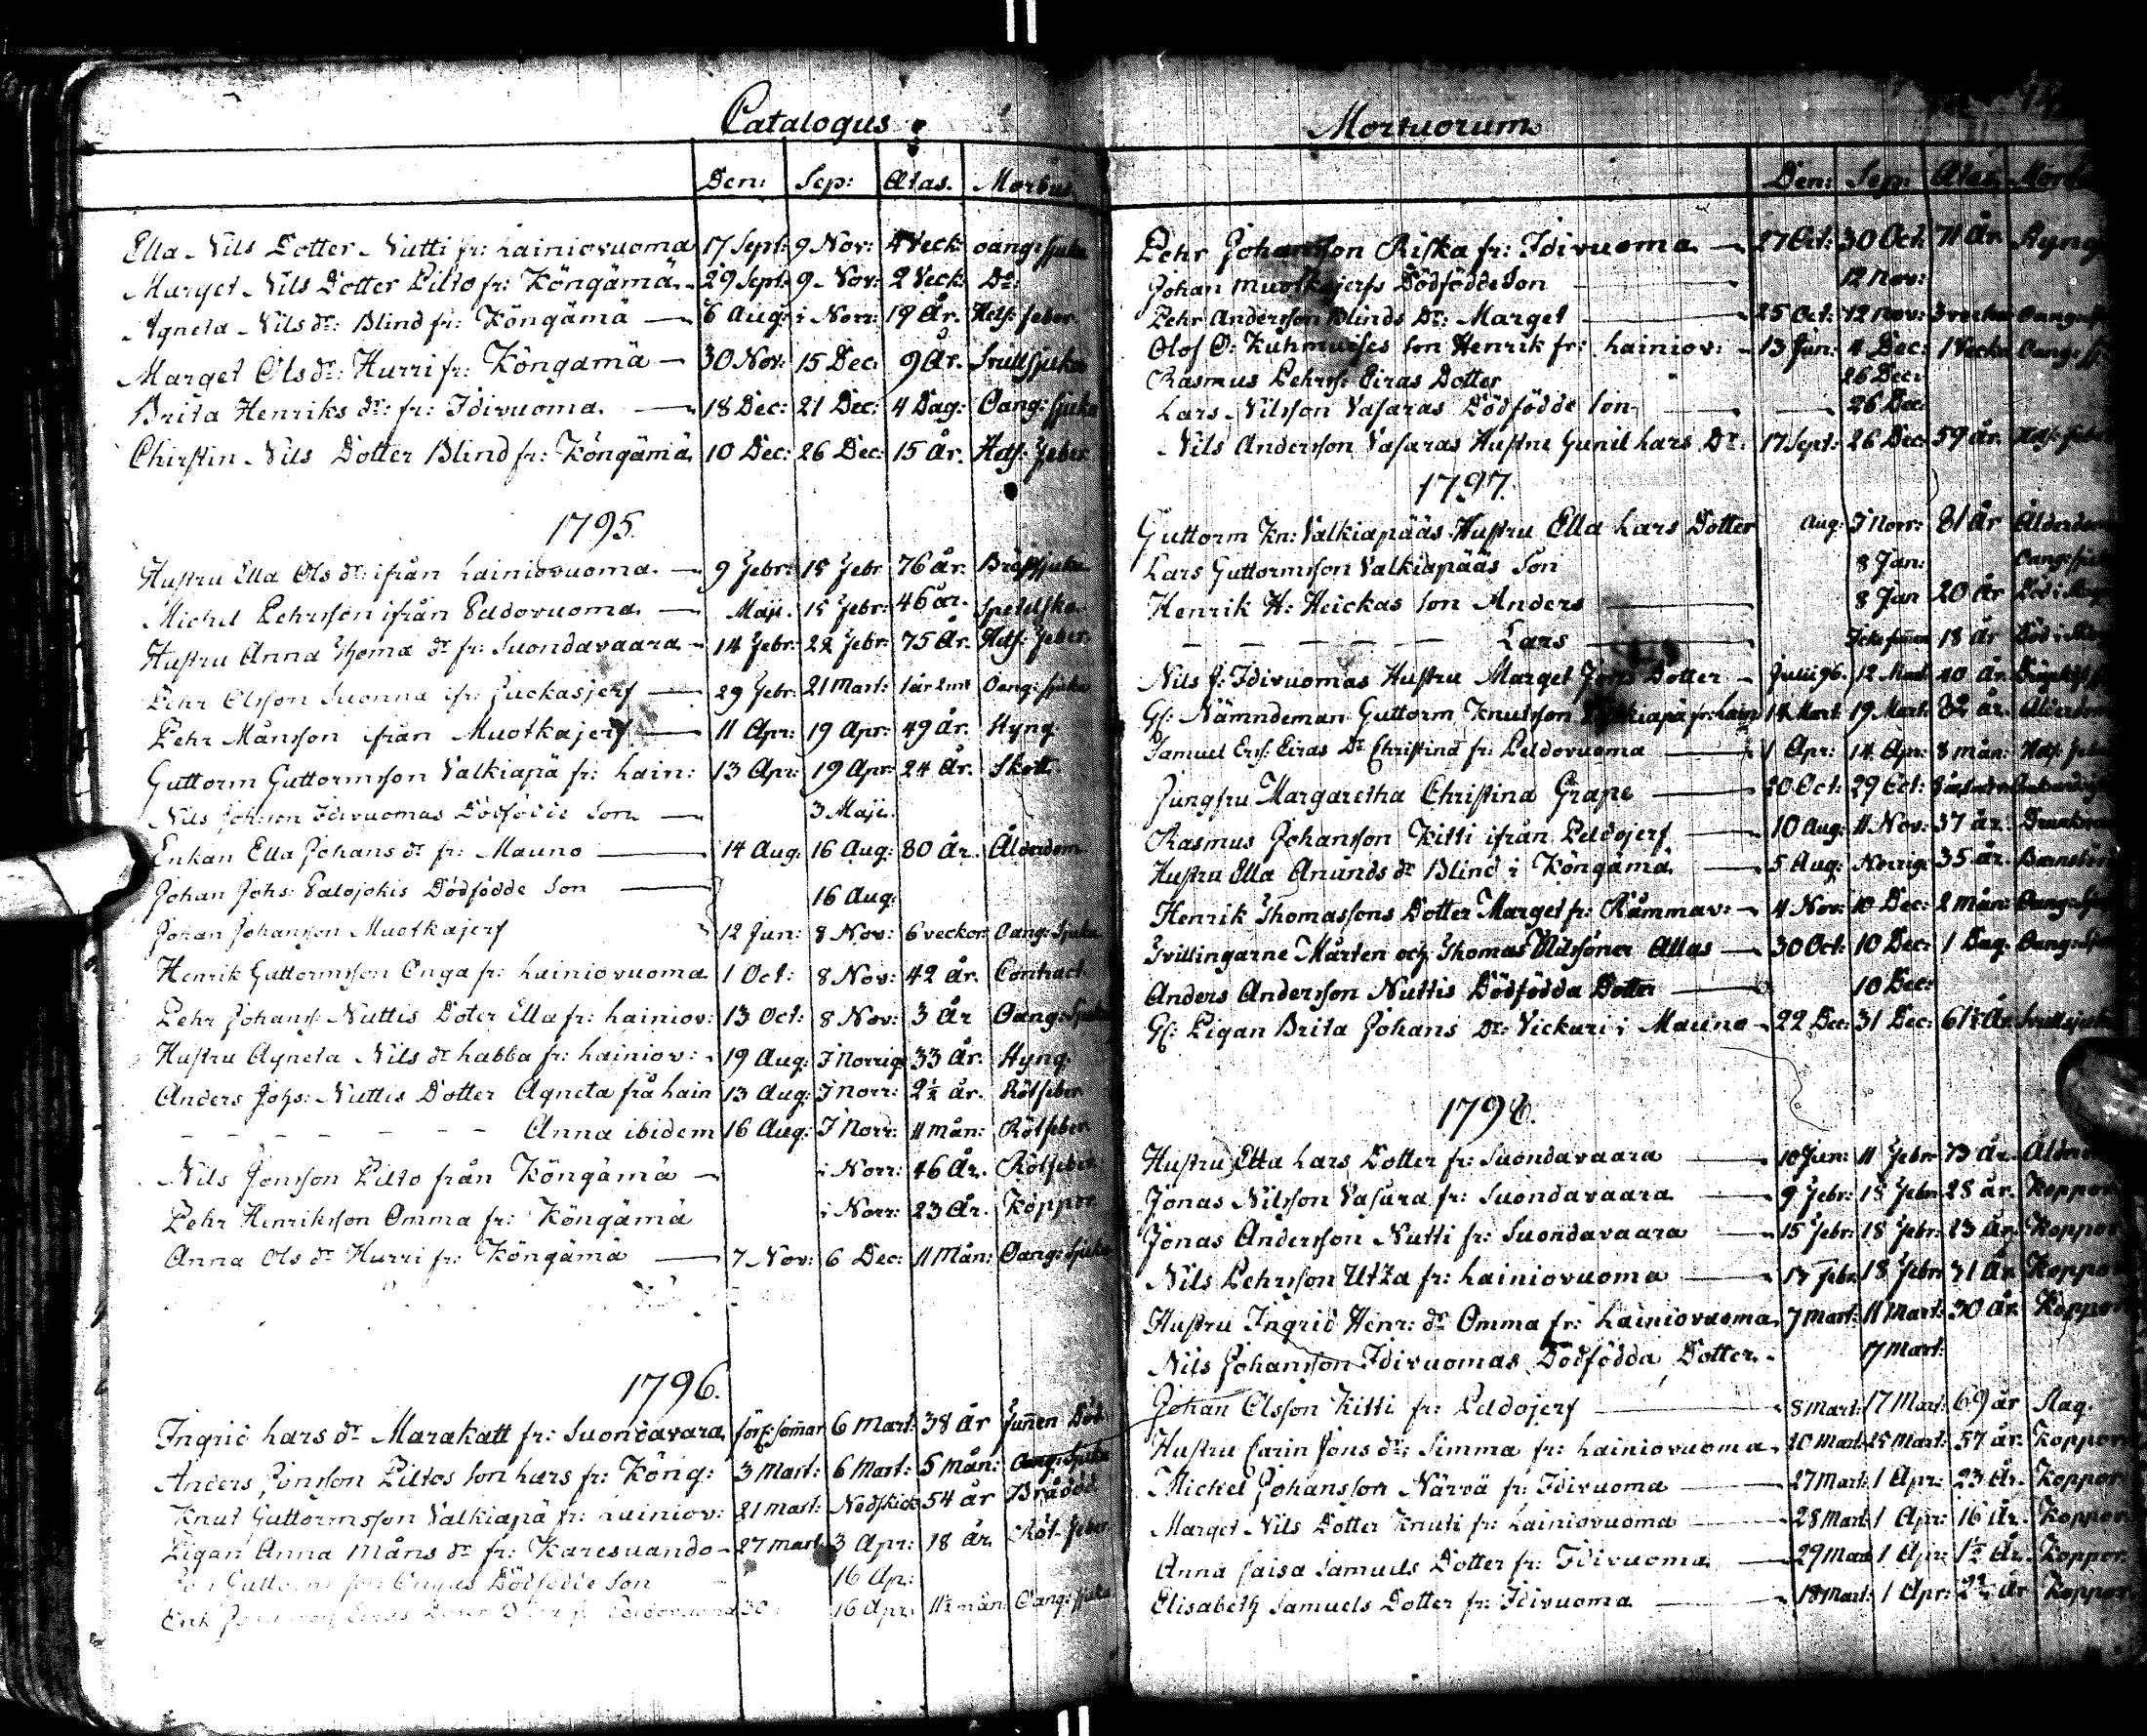 Catalogus
Den: Sep: Ætas. Morbus
Ella Nils Dotter Nutti fr: Lainiovuoma 17 Sept: 9 Nov: 4 Veck: oang: sjuka
Marget Nils Dotter Pilto fr: Köngämä 29 Sept: 9 Nov: 2 Veck: Do:
Agneta Nils dr: Blind fr: Köngämä 6 Aug: i Norr: 19 År. Hets: feber
Marget Ols dr: Hurri fr: Köngämä 30 Nov: 15 Dec: 9 År.
Brita Henriks dr: fr: Idivuoma. 18 Dec: 21 Dec: 4 Dag: Oang: sjuka
Chirstin Nils Dotter Blind fr: Köngämä 10 Dec: 26 Dec: 15 År. Hets: feber
1795.
Hustru Ella Ols dr: ifrån Lainiovuoma. 9 Febr: 15 Febr 76 år. Bråstsjuka
Michel Pehrsson ifrån Peldovuoma. Maji. 15 Febr: 46 år. Spetelska
Hustru Anna Thoma dr fr: Suondavaara 14 Febr: 22 Febr: 75 År. Hets: feber.
Pehr Olsson Suonna ifr: Juckasjerf 29 Febr: 21 Mart: 1 år 2 mn Oang: sjuka
Pehr Månsson ifrån Muotkajerf 11 Apr: 19 Apr: 49 år. Styng.
Guttorm Guttormsson Valkiapä fr: Lain: 13 Apr: 19 Apr: 24 År. Skott.
Nils Johsson Idivuomas Dödfödde Son 3 Maji.
Enkan Ella Johans dr fr: Mauno 14 Aug: 16 Aug: 80 år. Ålderdom
Johan Johs: Palojokis Dödfödde Son 16 Aug:
Johan Johansson Muotkajerf 12 Jun: 8 Nov: 6 veckor Oang: Sjuka
Henrik Guttormsson Onga fr: Lainiovuoma 1 Oct: 8 Nov: 42 år. Contract
Pehr Johans: Nuttis Doter Ella fr: Lainiov: 13 Oct: 8 Nov: 3 År Oang: Sjuka
Hustru Agneta Nils dr Labba fr: Lainiov: 19 Aug: I Norrige 33 År. Styng.
Anders Johs: Nuttis Dotter Agneta frå Lain 13 Aug: I Norr: 2½ år. Rötfeber
– – – – – – – Anna ibidem 16 Aug: I Norr: 11 mån: Rötfeber
Nils Jonsson Pilto från Köngämä i Norr: 46 År. Rötfeber.
Pehr Henriksson Omma fr: Köngämä i Norr: 23 År. Koppor.
Anna Ols dr Hurri fr: Köngämä 7 Nov: 6 Dec: 11 Mån: Oang: Sjuka
1796.
Ingrid Lars dr Marakatt fr: Suondavara 6 Mart: 38 år Funnen Död
Anders Jonsson Piltos Son Lars fr: Köng: 3 Mart: 6 Mart: 5 mån: Oang: Sjuka
Knut Guttormsson Valkiapä fr: Lainiov: 21 Mart: 54 år Brådöd
Pigan Anna Måns dr fr: Karesuando 27 Mart 3 Apr: 18 år. Röt feber
Guttorms Dödfödde Son 16 Ap:
Erik 30 16 Apr: mån: Oang: sjuka
Mortuorum
Den: Sep: Ætas Morb
Pehr Johansson Riska fr: Idivuoma 27 Oct: 30 Oct: 71 År. Styng
Johan Muotkajerfs Dödfödde Son 12 Nov:
Pehr Andersson Blinds Dr: Marget 25 Oct: 12 Nov: 3 veckor Oang:
Olof O: Kuhmuises Son Henrik fr: Lainiov: 13 Jun: 4 Dec: 1 Vecka Oang:
Rasmus Pehrss: Eiras Dotter 26 Dec:
Lars Nilsson Vasaras Dödfödde Son 26 Dec:
Nils Andersson Vasaras Hustru Gunil Lars Dr: 17 Sept: 26 Dec: 59 år. Hets: feber
1797.
Guttorm Kn: Valkiapääs Hustru Ella Lars Dotter Aug: I Norr: 81 År Ålderdom
Lars Guttormsson Valkiapääs Son 8 Jan: Oang: sjuk
Henrik H: Heickas Son Anders 8 Jan 20 År
– – – – – Lars 18 år
Nils J: Idivuomas Hustru Marget Jons Dotter Julii 96. 12 Mart 40 År.
Gs: Nämndeman Guttorm Knutsson Valkiapä fr: Lain 14 Mart 19 Mart: 82 år. Ålderdom
Samuel Ers: Eiras Dr Christina fr: Peldovuoma 1 Apr: 14 Apr: 8 mån: Hets: feber
Jungfru Margaretha Christina Grape 20 Oct: 29 Oct:
Rasmus Johansson Kitti ifrån Peldojerf 10 Aug: 11 Nov: 37 år. Drunknad
Hustru Ella Anunds dr Blind i Köngämä 5 Aug: Norrige 35 år. Barnsbörd
Henrik Thomassons Dotter Marget fr: Råmmav: 4 Nov: 10 Dec: 2 mån: Oang:
Tvillingarne Mårten och Thomas Nilssöner Allas 30 Oct: 10 Dec: 1 Dag: Oang:
Anders Andersson Nuttis Dödfödda Dotter 10 Dec:
Gs: Pigan Brita Johans Dr: Vickari i Mauno 22 Dec: 31 Dec: 61½ År.
1798.
Hustru Ella Lars Dotter fr: Suondavaara 10 Jan: 11 Febr 73 År. Ålder
Jonas Nilsson Vasara fr: Suondavaara 9 Febr: 18 Febr 28 år. Koppor
Jonas Andersson Nutti fr: Suondavaara 15 Febr: 18 Febr: 23 år. Koppor
Nils Pehrsson Utza fr: Lainiovuoma 17 Febr 18 Febr 31 År. Koppor
Hustru Ingrid Henr: dr Omma fr: Lainiovuoma 7 Mart: 11 Mart: 30 år. Koppor
Nils Johansson Idivuomas Dödfödda Dotter 17 Mart:
Johan Olsson Kitti fr: Peldojerf 8 Mart: 17 Mart: 69 år
Hustru Carin Jons dr: Simma fr: Lainiovuoma 20 Mart: 25 Mart: 57 år. Koppor
Michel Johansson Närvä fr: Idivuoma 27 Mart: 1 Apr: 23 År. Koppor
Marget Nils Dotter Knuti fr: Lainiovuoma 28 Mart 1 Apr: 16 År. Koppor
Anna Caisa Samuels Dotter fr: Idivuoma 29 Mart 1 Apr: 1½ År. Koppor
Elisabeth Samuels Dotter fr: Idivuoma 18 Mart: 1 Apr: År Koppor